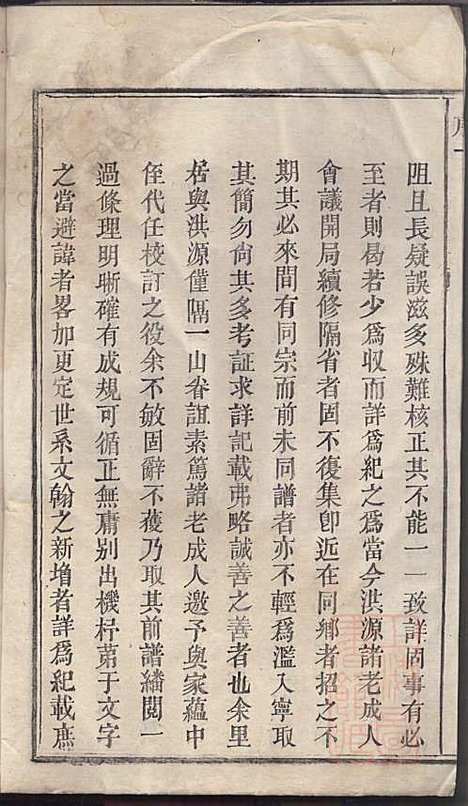 阻且長疑誤滋多殊難核正其不能一一致詳固事有必
至者則曷若少爲収而詳爲紀之爲當今洪源諸老成人
會議開局續修隔省者固不復集卽近在同鄉者招之不
期其必來間有同宗而前未同譜者亦不輕爲濫入寧取
其簡勿尙其多考証求詳記載弗略誠善之善者也余里
居與洪源僅隔一山眘誼素篤諸老成人邀予與家蘊中
侄代任校訂之役余不敏固辭不獲乃取其前譜繙閱一
過條理明晰確有成規可循正無庸别出機杼苐于文字
之當避諱者畧加更定世系文翰之新增者詳爲紀載庶